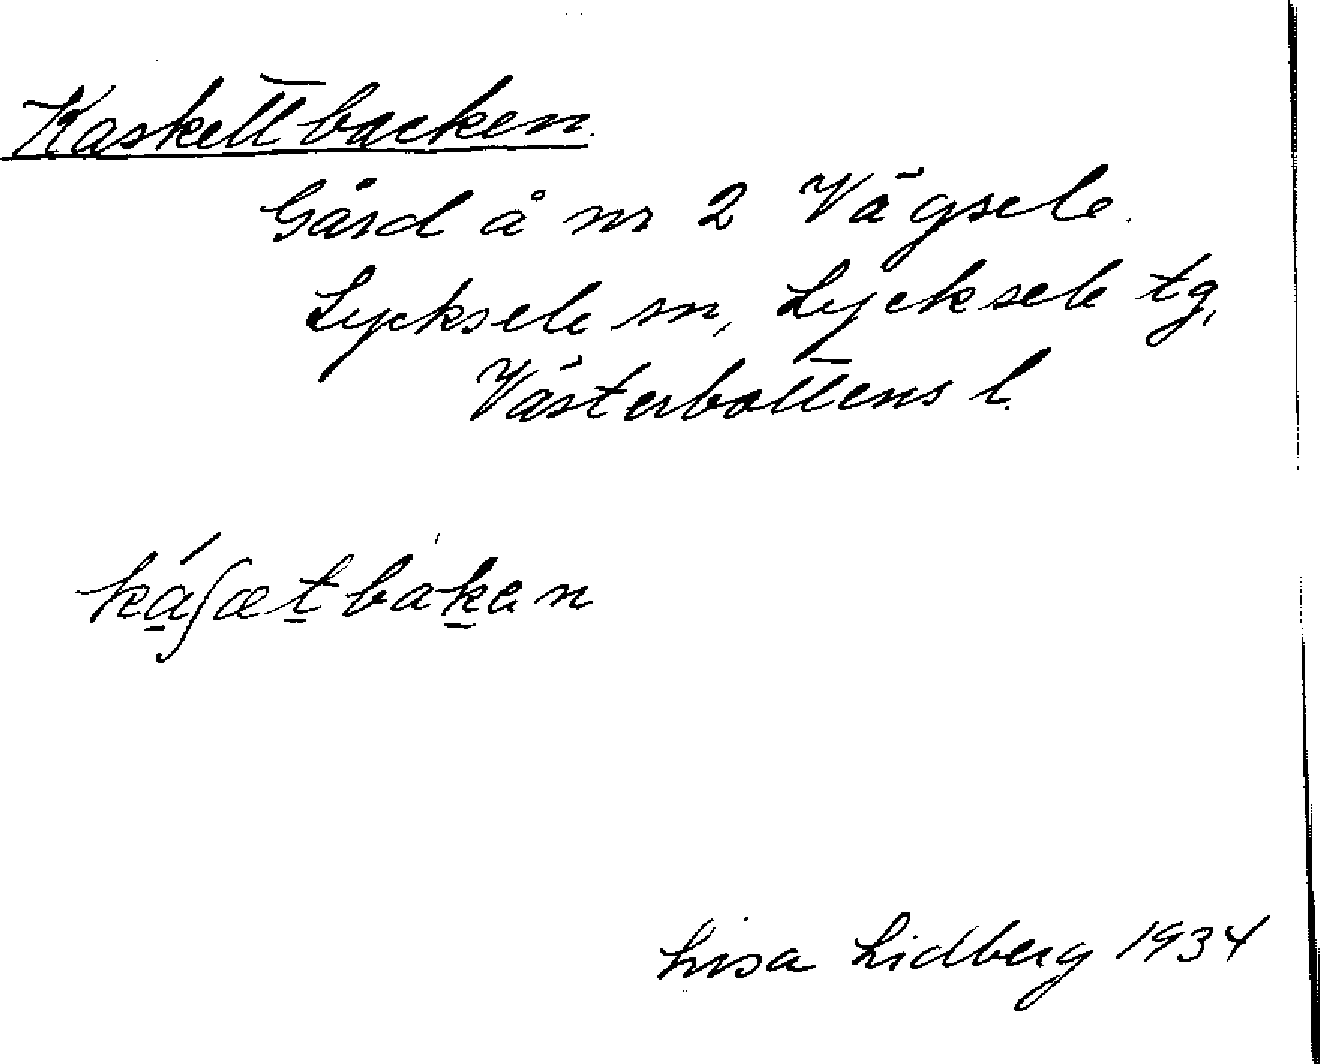 Kaskettbacken.
Gård å nr 2 Vägsele.
Lycksele sn, Lycksele tg,
Västerbottens l.
káʃæt bakan
Lisa Lidberg 1934